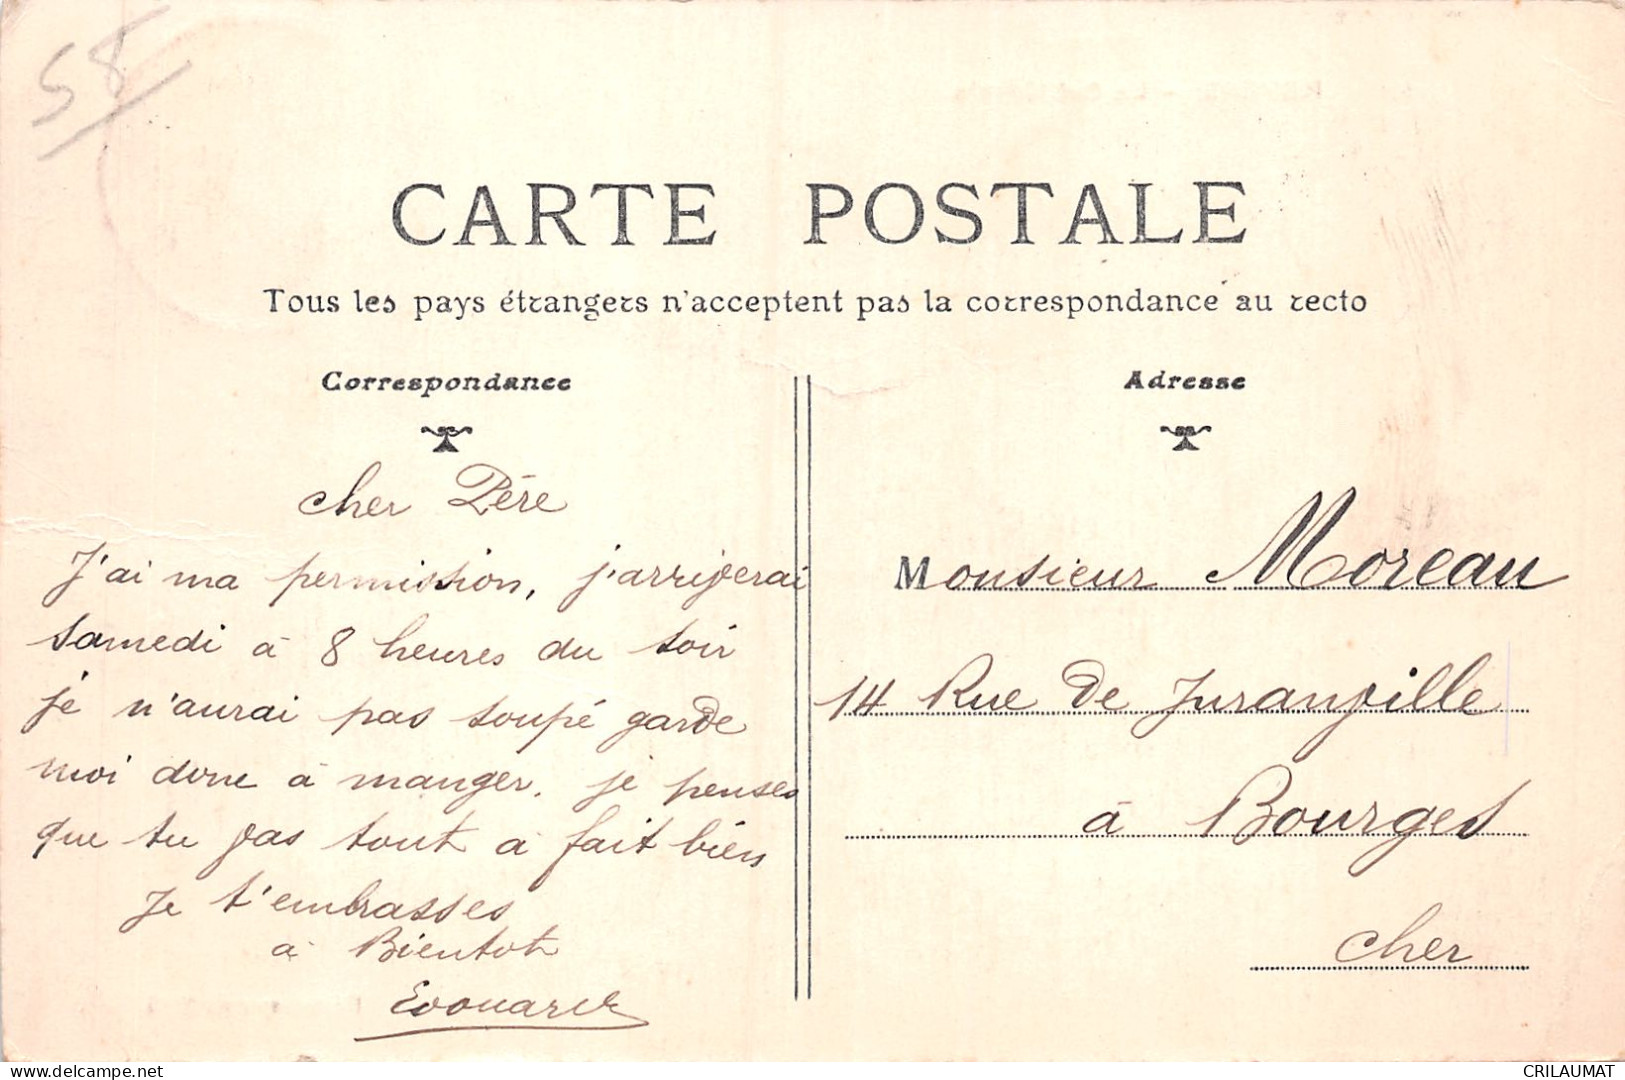 58
CARTE POSTALE
Tous les pays étrangers n'acceptent pas la correspondance au recto
Correspondance
cher Père
J'ai ma permission, j'arriverai
samedi à 8 heures du soir
je n'aurai pas soupé garde
moi donc à manger. je penses
que tu vas tout à fait bien
Je t'embrasses
à Bientot
Edouard
Adresse
Monsieur Moreau
14 Rue de Juranville
à Bourges
Cher
delcampe.net
CRILAUMAT